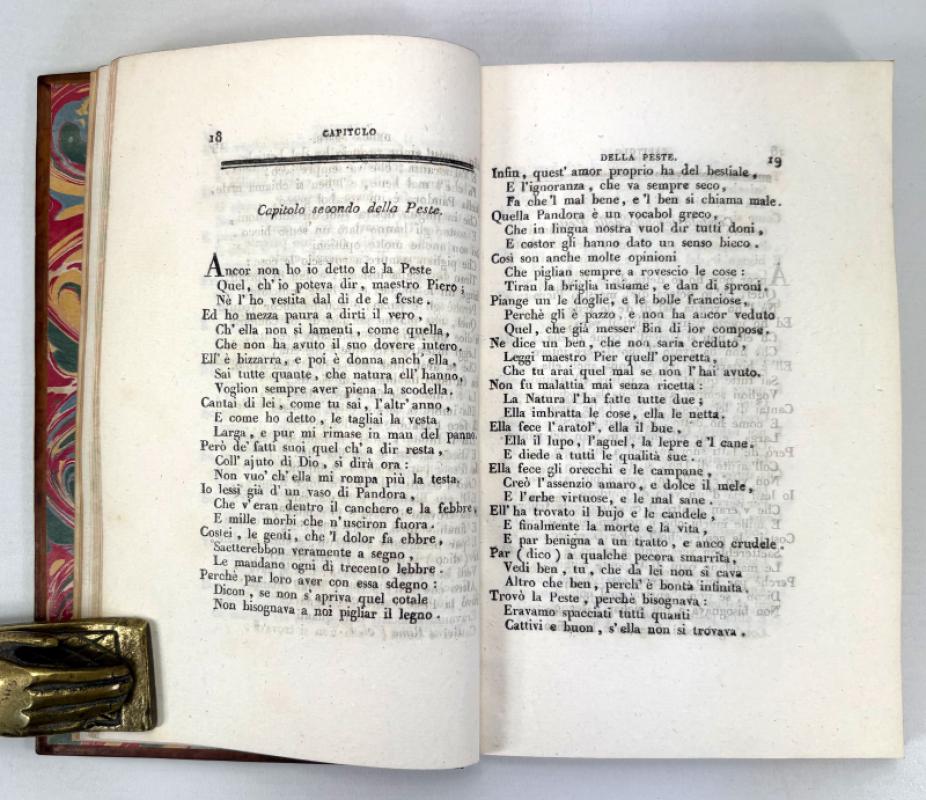 18
CAPITOLO
Capitolo secondo della Peste.
Ancor non ho io detto de la Peste
Quel, ch'io poteva dir, maestro Piero;
Nè l'ho vestita dal dì de le feste.
Ed ho mezza paura a dirti il vero,
Ch'ella non si lamenti, come quella,
Che non ha avuto il suo dovere intero.
Ell' è bizzarra, e poi è donna anch'ella,
Sai tutte quante, che natura ell'hanno,
Voglion sempre aver piena la scodella.
Cantai di lei, come tu sai, l'altr'anno,
E come ho detto, le tagliai la vesta
Larga, e pur mi rimase in man del panno.
Però de'fatti suoi quel ch'a dir resta,
Coll'ajuto di Dio, si dirà ora:
Non vuo' ch'ella mi rompa più la testa.
Io lessi già d'un vaso di Pandora,
Che v'eran dentro il canchero e la febbre,
E mille morbi che n'usciron fuora.
Costei, le genti, che'l dolor fa ebbre,
Saetterebbon veramente a segno,
Le mandano ogni dì trecento lebbre.
Perchè par loro aver con essa sdegno:
Dicon, se non s'apriva quel cotale
Non bisognava a noi pigliar il legno.
DELLA PESTE.
19
Infin, quest'amor proprio ha del bestiale,
E l'ignoranza, che va sempre seco,
Fa che'l mal bene, e'l ben si chiama male.
Quella Pandora è un vocabol greco,
Che in lingua nostra vuol dir tutti doni,
E costor gli hanno dato un senso bieco.
Così son anche molte opinioni
Che piglian sempre a rovescio le cose:
Tiran la briglia insieme, e dan di sproni.
Piange un le doglie, e le bolle franciose,
Perchè gli è pazzo, e non ha ancor veduto
Quel, che già messer Bin di lor compose.
Ne dice un ben, che non saria creduto,
Leggi maestro Pier quell'operetta,
Che tu arai quel mal se non l'hai avuto.
Non fu malattia mai senza ricetta:
La Natura l'ha fatte tutte due;
Ella imbratta le cose, ella le netta.
Ella fece l'aratol', ella il bue,
Ella il lupo, l'agnel, la lepre e'l cane.
E diede a tutti le qualità sue.
Ella fece gli orecchi e le campane,
Creò l'assenzio amaro, e dolce il mele,
E l'erbe virtuose, e le mal sane.
Ell'ha trovato il bujo e le candele,
E finalmente la morte e la vita,
E par benigna a un tratto, e anco crudele.
Par (dico) a qualche pecora smarrita,
Vedi ben, tu, che da lei non si cava
Altro che ben, perch'è bontà infinita.
Trovò la Peste, perchè bisognava:
Eravamo spacciati tutti quanti
Cattivi e buon, s'ella non si trovava.